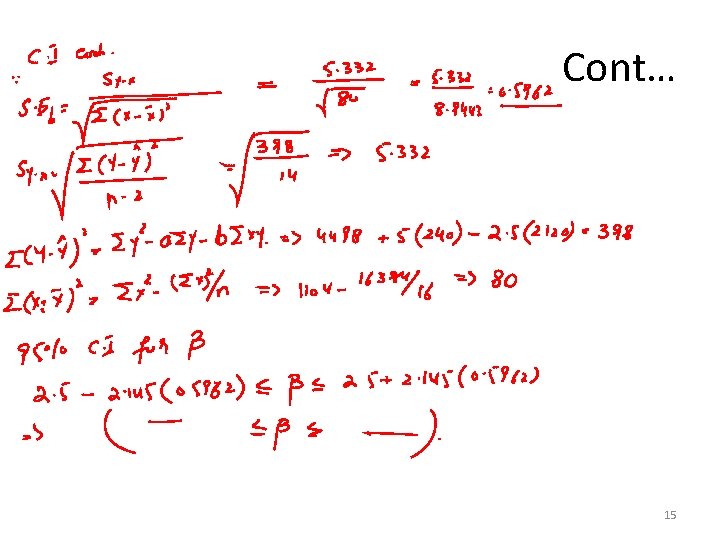 Cont...
C.I Contd.
∵ S.E_b = S_{y.x} / √Σ(x-x̄)² = 5.332 / √80 = 5.332 / 8.9443 = 0.5962
S_{y.x} = √(Σ(Y-Ŷ)² / n-2) = √(398 / 14) => 5.332
Σ(Y-Ŷ)² = ΣY² - aΣY - bΣXY. => 4498 + 5(240) - 2.5(2120) = 398
Σ(x-x̄)² = Σx² - (Σx)²/n => 1104 - 16384/16 => 80
95% C.I for β
2.5 - 2.145(0.5962) ≤ β ≤ 2.5 + 2.145(0.5962)
=> ( — ≤ β ≤ — ).
15